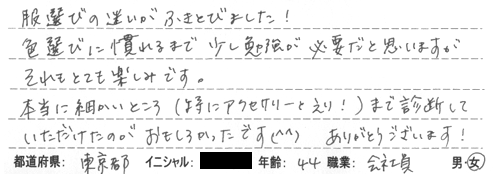 服選びの迷いがふきとびました！
色選びに慣れるまで少し勉強が必要だと思いますが
それもとても楽しみです。
本当に細かいところ（特にアクセサリーとえり！）まで診断して
いただけたのがおもしろかったです(^^)　ありがとうございます！
都道府県：東京都　イニシャル：　年齢：44　職業：会社員　男・女